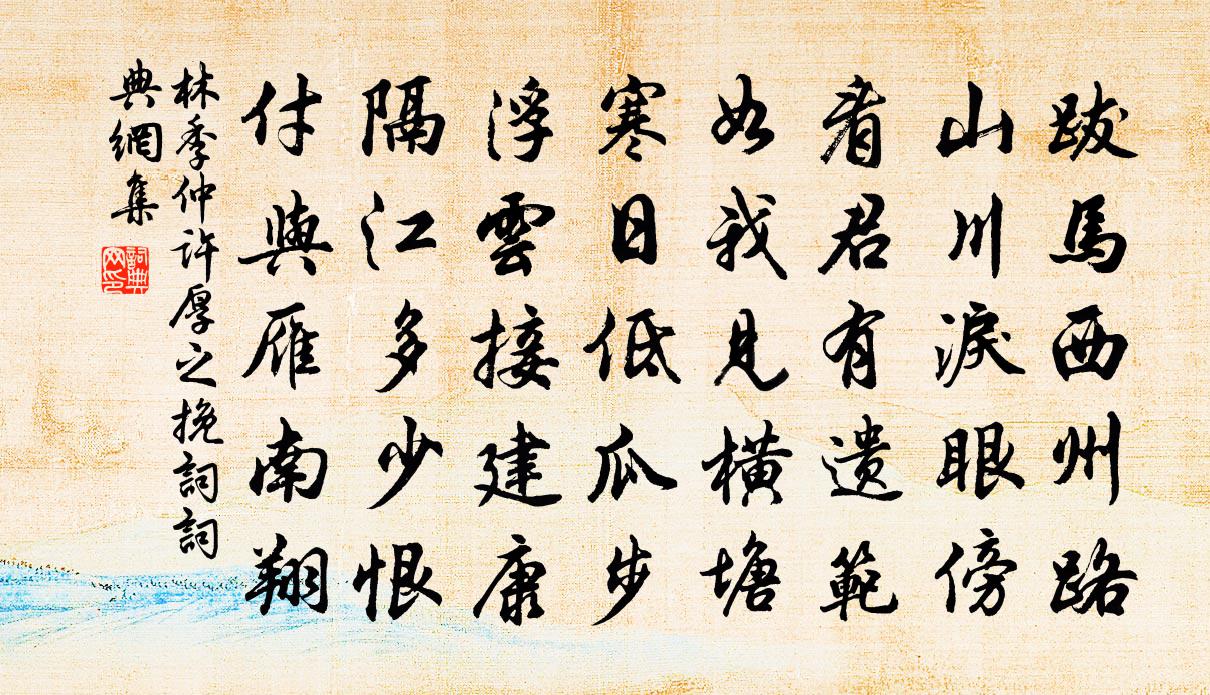 跋馬西州路
山川淚眼傍
看君有遺範
如我見橫塘
寒日低瓜步
浮雲接建康
隔江多少恨
付與雁南翔
林季仲許厚之挽詞詞
典網集
詞典